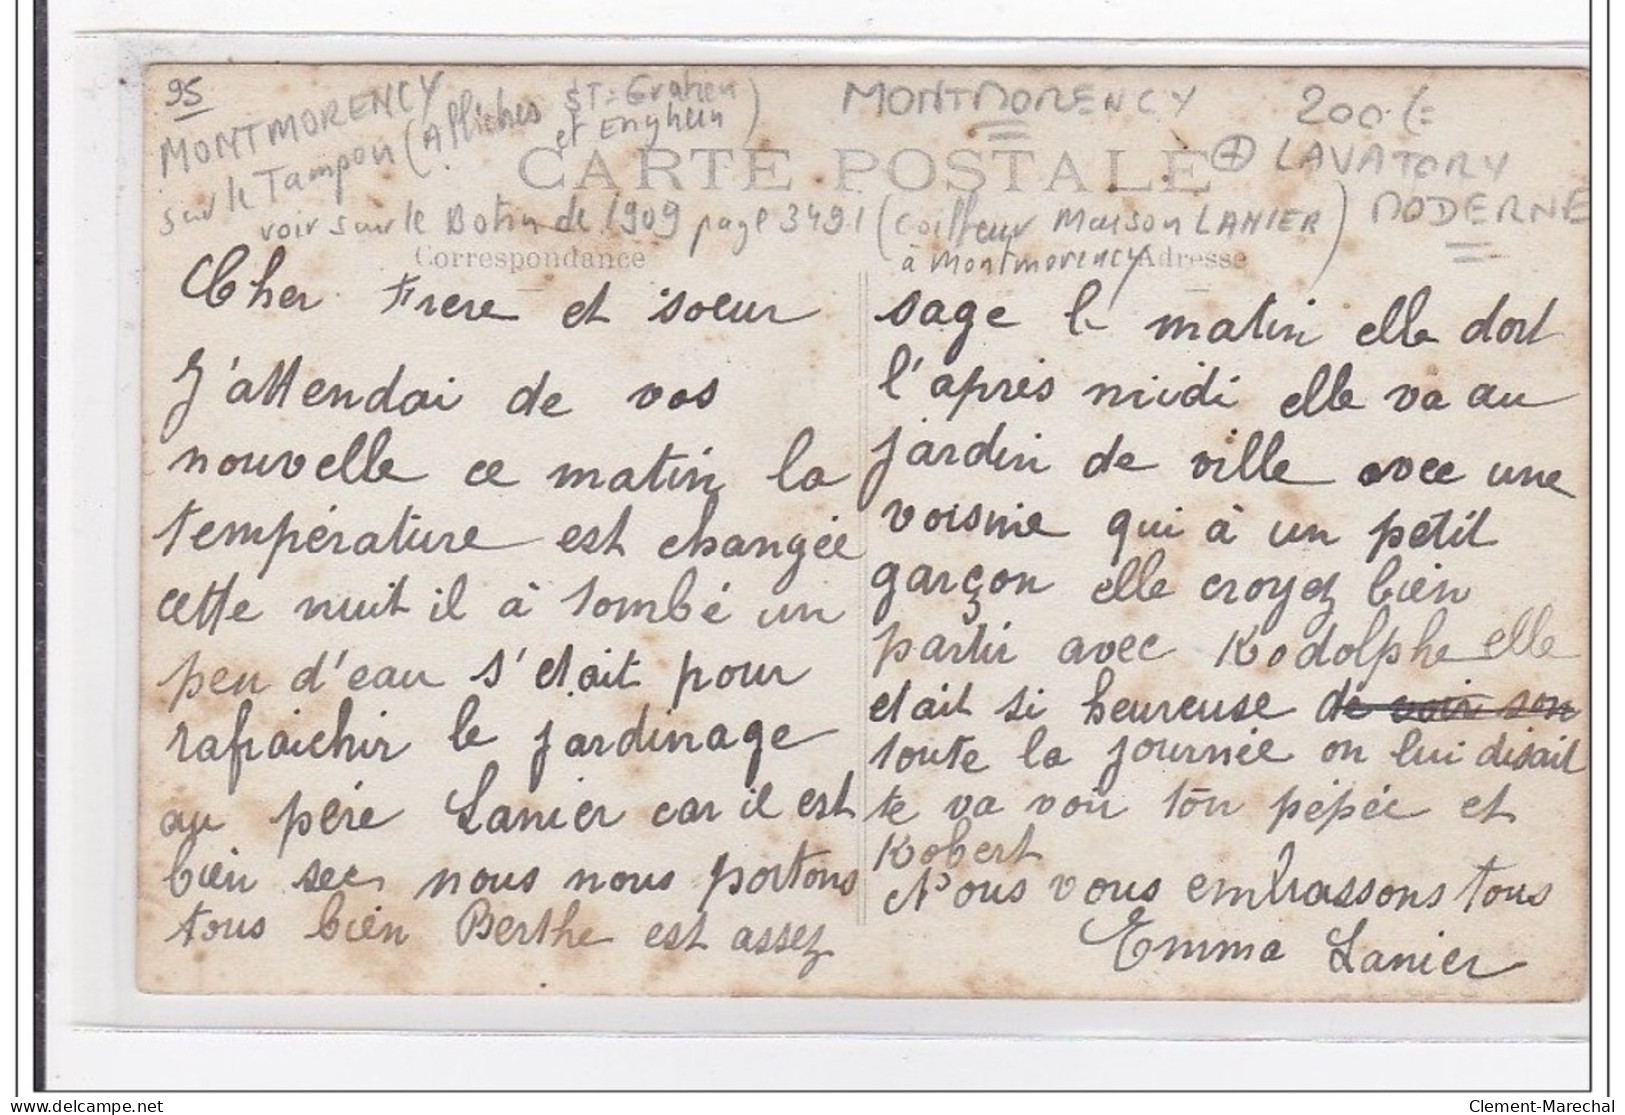 95
MONTMORENCY
sur le Tampon (Affiches ST-Gratien
et Enghien)
MONTMORENCY
200
+ LAVATORY
MODERNE
CARTE POSTALE
voir sur le Botin de 1909 page 3491 (Coiffeur Maison LANIER)
à Montmorency
Correspondance
Adresse
Cher Frere et soeur
J'attendai de vos
nouvelle ce matin la
température est changée
cette nuit il à tombé un
peu d'eau s'etait pour
rafraichir le jardinage
au père Lanier car il est
bien sec nous nous portons
tous bien Berthe est assez
sage le matin elle dort
l'après midi elle va au
jardin de ville avec une
voisine qui à un petit
garçon elle croyez bien
partir avec Rodolphe elle
etait si heureuse de voir son
toute la journée on lui disait
te va voir ton pépée et
Robert
Nous vous embrassons tous
Emma Lanier
Clement-Marechal
www.delcampe.net